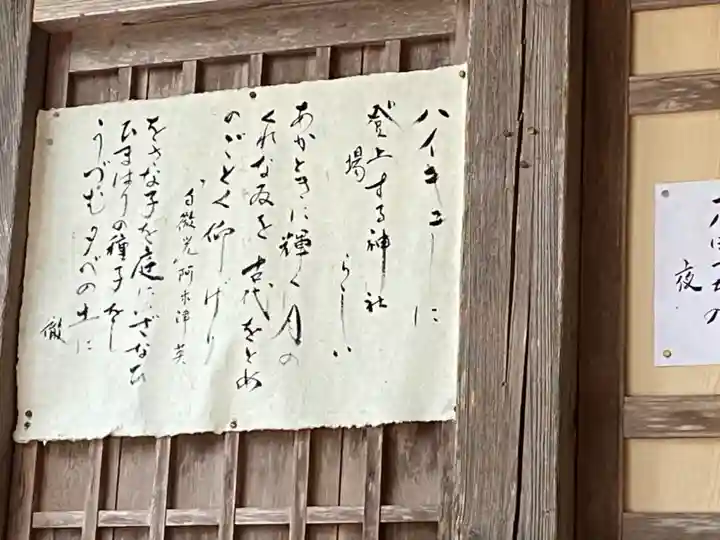 ハイキューに
登上する神社
場
らしい
あかときに輝く月の
くれなゐを古代をとめ
のごとく仰げり
白微光 阿木津 英
をさな子を庭にいざなひ
ひまはりの種子をし
うづむ夕べの土に
徹
夜